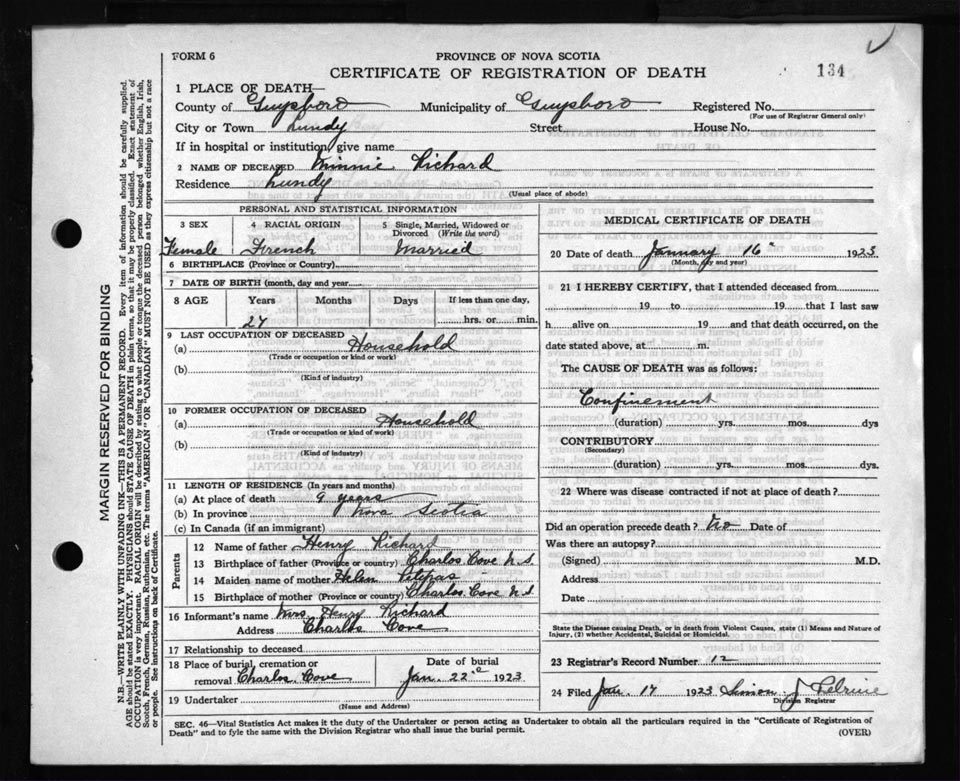 FORM 6
PROVINCE OF NOVA SCOTIA
CERTIFICATE OF REGISTRATION OF DEATH
134
1 PLACE OF DEATH—
County of Guysboro Municipality of Guysboro Registered No.
(For use of Registrar General only)
City or Town Lundy Street House No.
If in hospital or institution, give name
2 NAME OF DECEASED Minnie Richard
Residence Lundy
(Usual place of abode)
PERSONAL AND STATISTICAL INFORMATION
3 SEX 4 RACIAL ORIGIN 5 Single, Married, Widowed or Divorced (Write the word)
Female French Married
6 BIRTHPLACE (Province or Country)
7 DATE OF BIRTH (month, day and year)
8 AGE Years Months Days If less than one day,
27 hrs. or min.
9 LAST OCCUPATION OF DECEASED
(a) Household
(Trade or occupation or kind of work)
(b)
(Kind of industry)
10 FORMER OCCUPATION OF DECEASED
(a) Household
(Trade or occupation or kind of work)
(b)
(Kind of industry)
11 LENGTH OF RESIDENCE (In years and months)
(a) At place of death 9 years
(b) In province Nova Scotia
(c) In Canada (if an immigrant)
Parents
12 Name of father Henry Richard
13 Birthplace of father (Province or country) Charlos Cove N.S.
14 Maiden name of mother Helen Petipas
15 Birthplace of mother (Province or country) Charlos Cove N.S
16 Informant's name Mrs Henry Richard
Address Charlos Cove
17 Relationship to deceased
18 Place of burial, cremation or removal Charlos Cove
Date of burial
Jan. 22 1923
19 Undertaker
(Name and Address)
MEDICAL CERTIFICATE OF DEATH
20 Date of death January 16 1923
(Month, day and year)
21 I HEREBY CERTIFY, that I attended deceased from
19 to 19 that I last saw
h alive on 19 and that death occurred, on the
date stated above, at m.
The CAUSE OF DEATH was as follows:
Confinement
(duration) yrs. mos. dys
CONTRIBUTORY
(Secondary)
(duration) yrs. mos. dys.
22 Where was disease contracted if not at place of death?
Did an operation precede death? No Date of
Was there an autopsy?
(Signed) M.D.
Address
Date
State the Disease causing Death, or in death from Violent Causes, state (1) Means and Nature of
Injury, (2) whether Accidental, Suicidal or Homicidal.
23 Registrar's Record Number 12
24 Filed Jan 17 1923 Simon J Pelrine
Division Registrar
SEC. 46—Vital Statistics Act makes it the duty of the Undertaker or person acting as Undertaker to obtain all the particulars required in the "Certificate of Registration of
Death" and to fyle the same with the Division Registrar who shall issue the burial permit.
(OVER)
MARGIN RESERVED FOR BINDING
N.B.—WRITE PLAINLY WITH UNFADING INK—THIS IS A PERMANENT RECORD. Every item of information should be carefully supplied.
AGE should be stated EXACTLY. PHYSICIANS should STATE CAUSE OF DEATH in plain terms, so that it may be properly classified. Exact statement of
OCCUPATION is very important. RACIAL ORIGIN will be described by stating to what people or tongue the deceased person belonged, whether English, Irish,
Scotch, French, German, Russian, Ruthenian, etc. The terms "AMERICAN" OR "CANADIAN" MUST NOT BE USED as they express citizenship but not a race
or people. See instructions on back of Certificate.